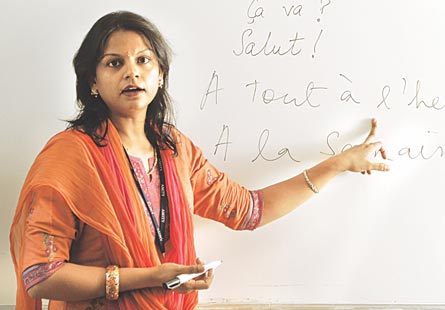 Ça va?
Salut!
A Tout à l'he
A la Semain
AMITY